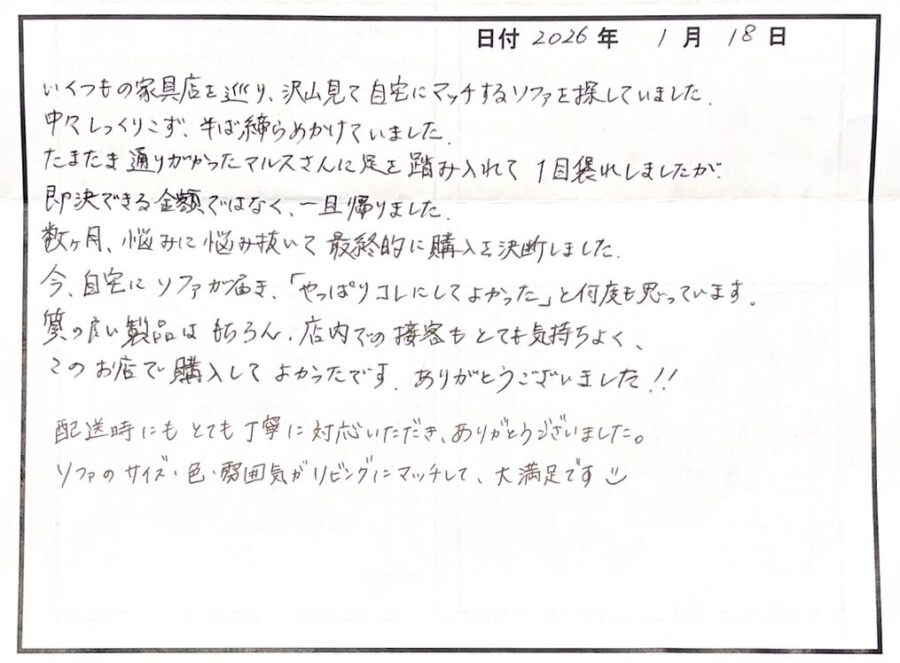 日付 2026 年 1 月 18 日
いくつもの家具店を巡り、沢山見て自宅にマッチするソファを探していました.
中々しっくりこず、半ば締らめかけていました.
たまたま通りがかったマルスさんに足を踏み入れて 1目惚れしましたが.
即決できる金額ではなく、一旦帰りました.
数ヶ月、悩みに悩み抜いて 最終的に購入を決断しました.
今、自宅に ソファが届き、「やっぱりコレにしてよかった」と何度も思っています.
質の良い製品は もちろん、店内での接客も とても気持ちよく、
このお店で購入して よかったです. ありがとうございました!!
配送時にも とても丁寧に対応いただき、ありがとうございました。
ソファのサイズ・色・雰囲気がリビングにマッチして、大満足です☺